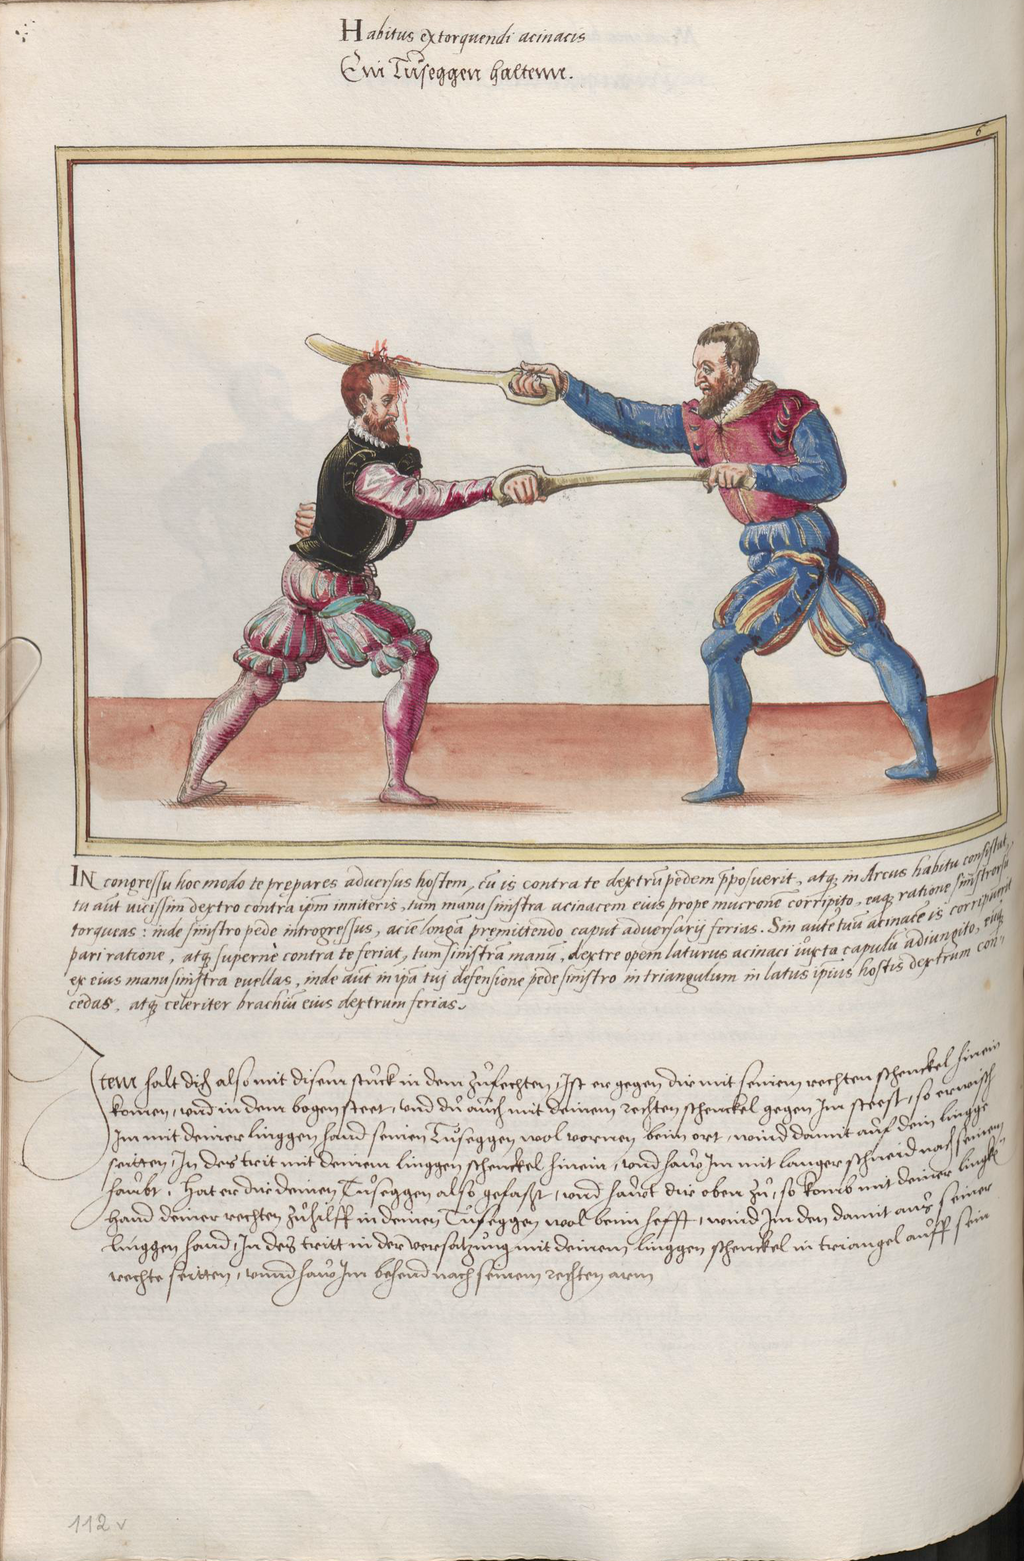 Habitus extorquendi acinacis
Ein Tuseggen haltenn.
6
IN congressu hoc modo te prepares adversus hostem, cũ is contra te dextrũ pedem p̃posuerit, atq; in Arcus habitu consistat,
tu aut vicissim dextro contra ipm̃ inniteris, tum manu sinistra acinacem eius prope mucronẽ corripito, eaq; ratione sinistrorsũ
torqueas: inde sinistro pede introgressus, acie longa premittendo caput adversarij ferias. Sin autẽ tuũ acinacẽ is corripuerit
pari ratione, atq; superne contra te feriat, tum sinistrã manũ, dextre opem laturus acinaci iuxta capulũ adiungito, eiq;
ex eius manu sinistra evellas, inde aut in ipã tuj defensione pede sinistro in triangulum in latus ipsius hostis dextrum con-
cedas, atq; celeriter brachiũ eius dextrum ferias.
Item halt dich also mit disem stuck in dem zufechten, Ist er gegen dir mit seinem rechten schenckel hinein
komen, unnd in dem bogen steet, und du auch mit deinem rechten schenckel gegen Im steest, so erwisch
Im mit deiner linggen hand seinen Tuseggen wol vornen beim ort, wind damit auf dein lingge
seitten, In des trit mit deinem linggen schenckel hinein, unnd haw Im mit langer schneid nach seinem
haubt. Hat er dir deinen Tuseggen also gefasst, unnd hawt dir oben zu, so komb mit deiner lingken
hand deiner rechten zuhilff in deinen Tuseggen wol beim hefft, wind Im den damit aus seiner
linggen hand, In des tritt in der versatzung mit deinem linggen schenckel in triangel auff sein
rechte seitten, unnd haw Im behend nach seinem rechten arm
112 v